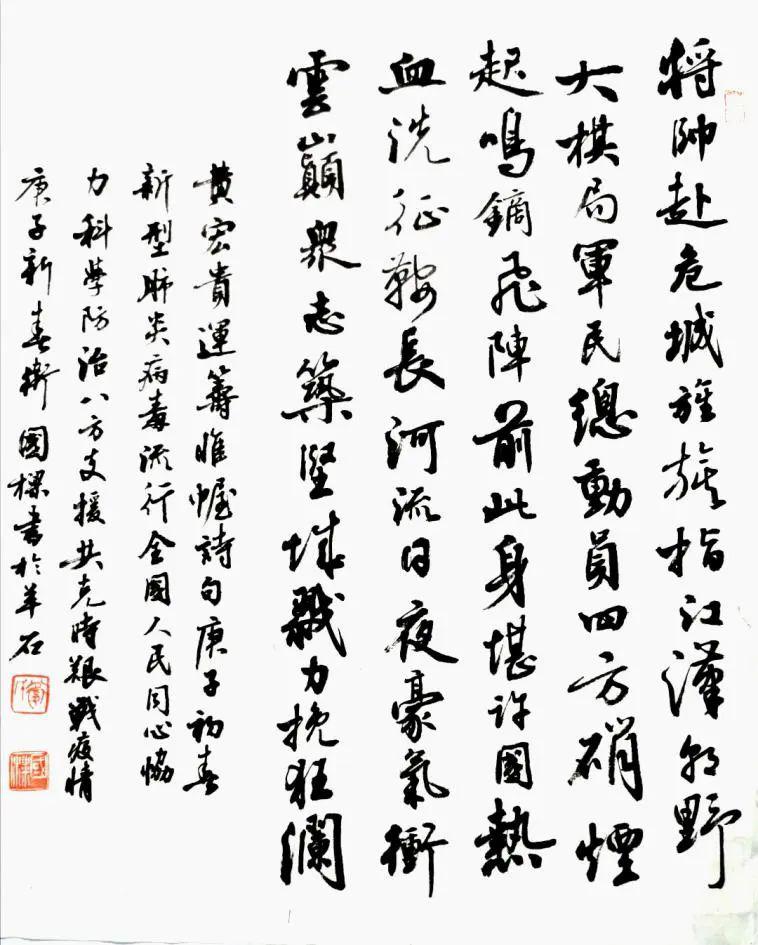 将帥赴危城旌旗指江漢朝野
大棋局軍民總動員四方硝煙
起鳴鏑飛陣前此身堪許國熱
血洗征鞍長河流日夜豪氣衝
雲巔衆志築堅城戮力挽狂瀾
黄宏貴運籌帷幄詩句庚子初春
新型肺炎病毒流行全國人民同心協
力科學防治八方支援共克時艱戰疫情
庚子新春衛國樑書於羊石